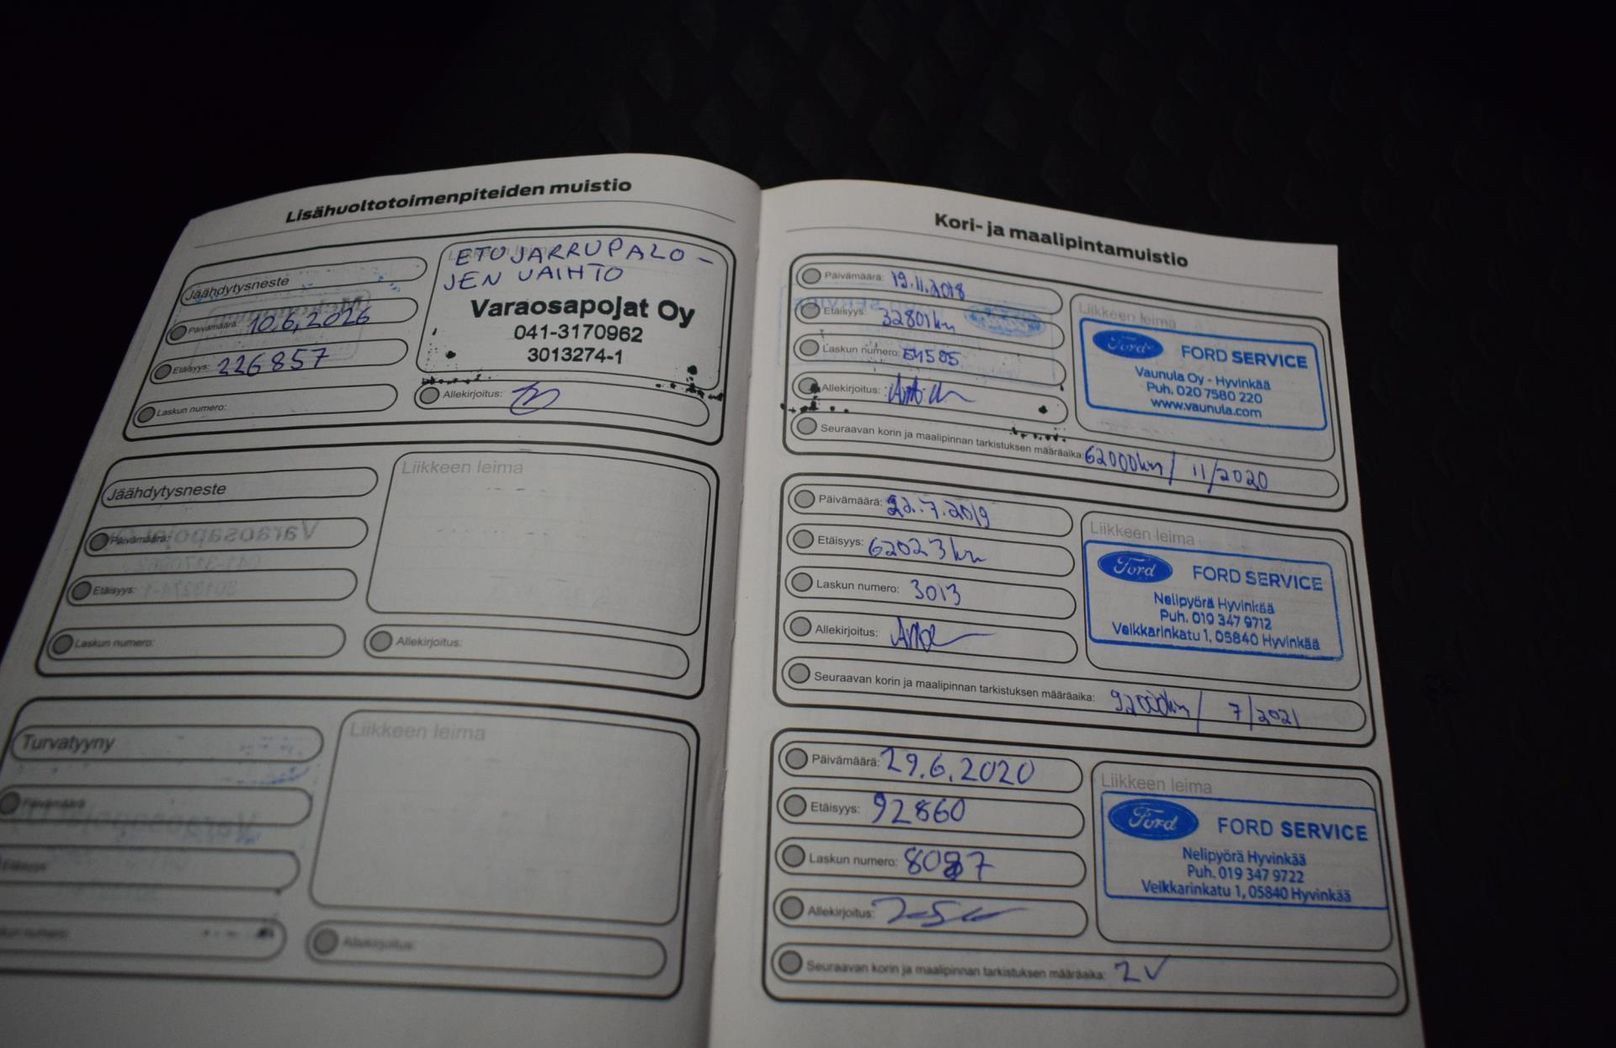 Lisähuoltotoimenpiteiden muistio
Jäähdytysneste
Päivämäärä: 10.6.2026
Etäisyys: 226857
Laskun numero:
ETUJARRUPALO-
JEN VAIHTO
Varaosapojat Oy
041-3170962
3013274-1
Allekirjoitus:
Jäähdytysneste
Päivämäärä:
Etäisyys:
Laskun numero:
Liikkeen leima
Allekirjoitus:
Turvatyyny
Päivämäärä
Etäisyys
numero:
Liikkeen leima
Allekirjoitus:
Kori- ja maalipintamuistio
Päivämäärä: 19.11.2018
Etäisyys: 32801km
Laskun numero:
Allekirjoitus:
Liikkeen leima
Ford FORD SERVICE
Vaunula Oy - Hyvinkää
Puh. 020 7580 220
www.vaunula.com
Seuraavan korin ja maalipinnan tarkistuksen määräaika: 62000km / 11/2020
Päivämäärä: 22.7.2019
Etäisyys: 62023km
Laskun numero: 3013
Allekirjoitus:
Liikkeen leima
Ford FORD SERVICE
Nelipyörä Hyvinkää
Puh. 019 347 9712
Veikkarinkatu 1, 05840 Hyvinkää
Seuraavan korin ja maalipinnan tarkistuksen määräaika: 92000km / 7/2021
Päivämäärä: 29.6.2020
Etäisyys: 92860
Laskun numero:
Allekirjoitus:
Liikkeen leima
Ford FORD SERVICE
Nelipyörä Hyvinkää
Puh. 019 347 9722
Veikkarinkatu 1, 05840 Hyvinkää
Seuraavan korin ja maalipinnan tarkistuksen määräaika: 2V